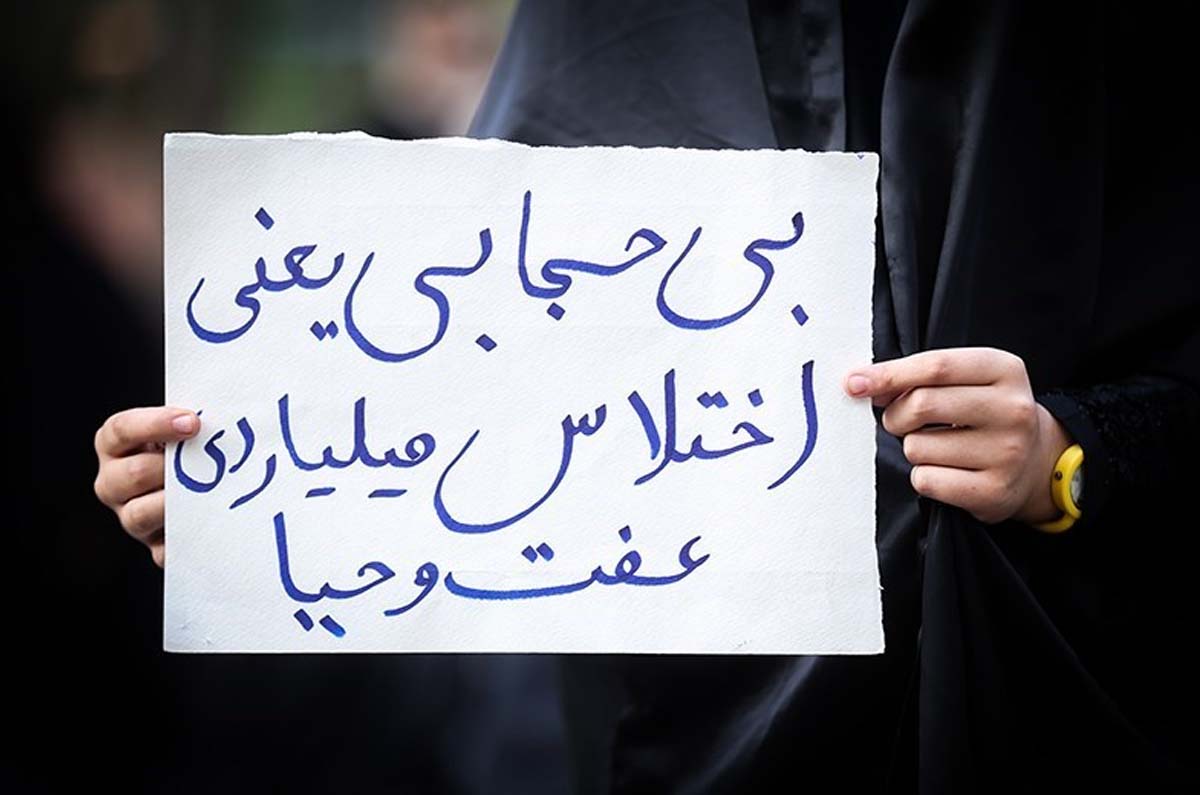 بی حجابی یعنی
اختلاس میلیاردی
عفت و حیا